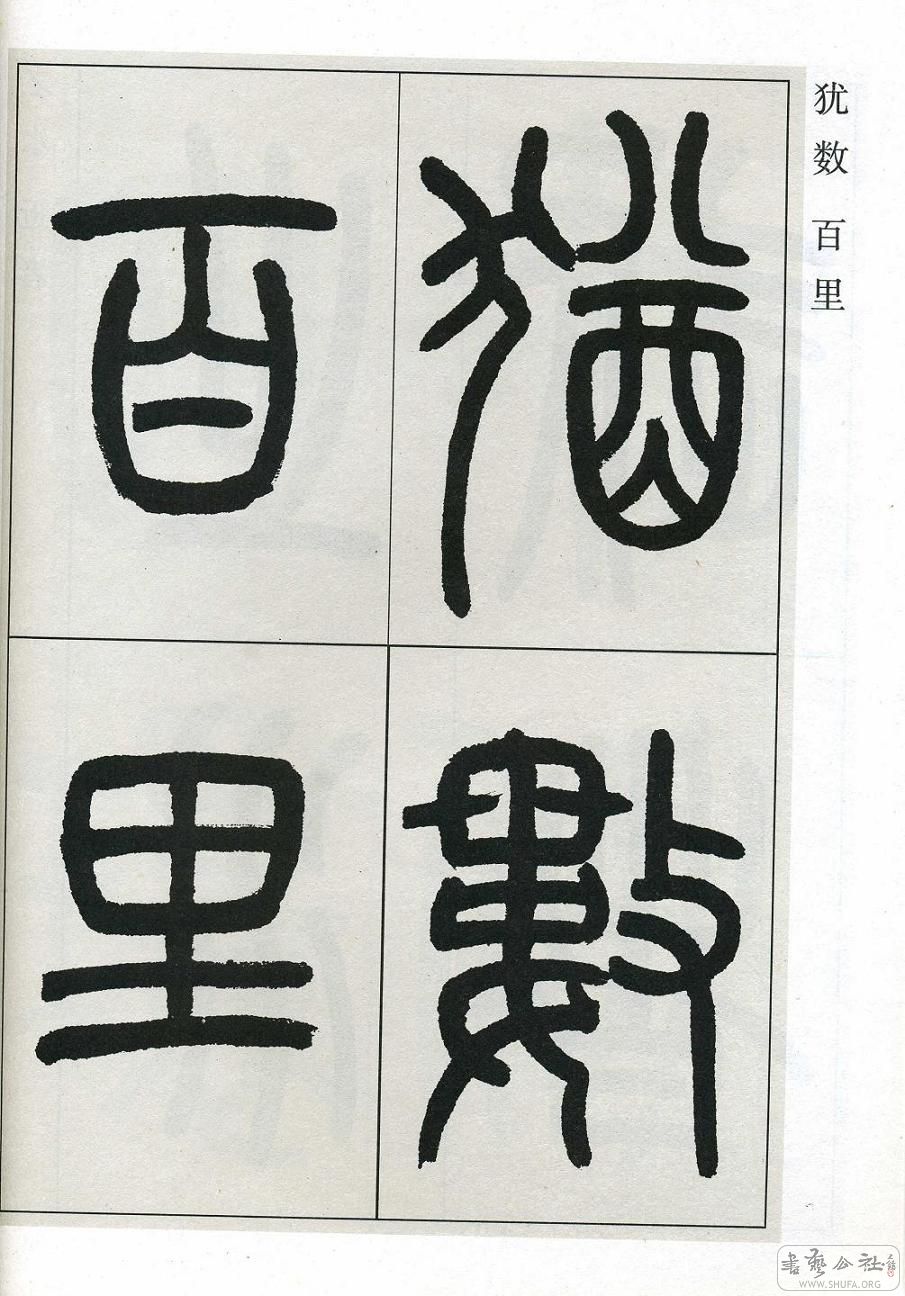 犹数 百里
猶數
百里
書藝公社
WWW.SHUFA.ORG